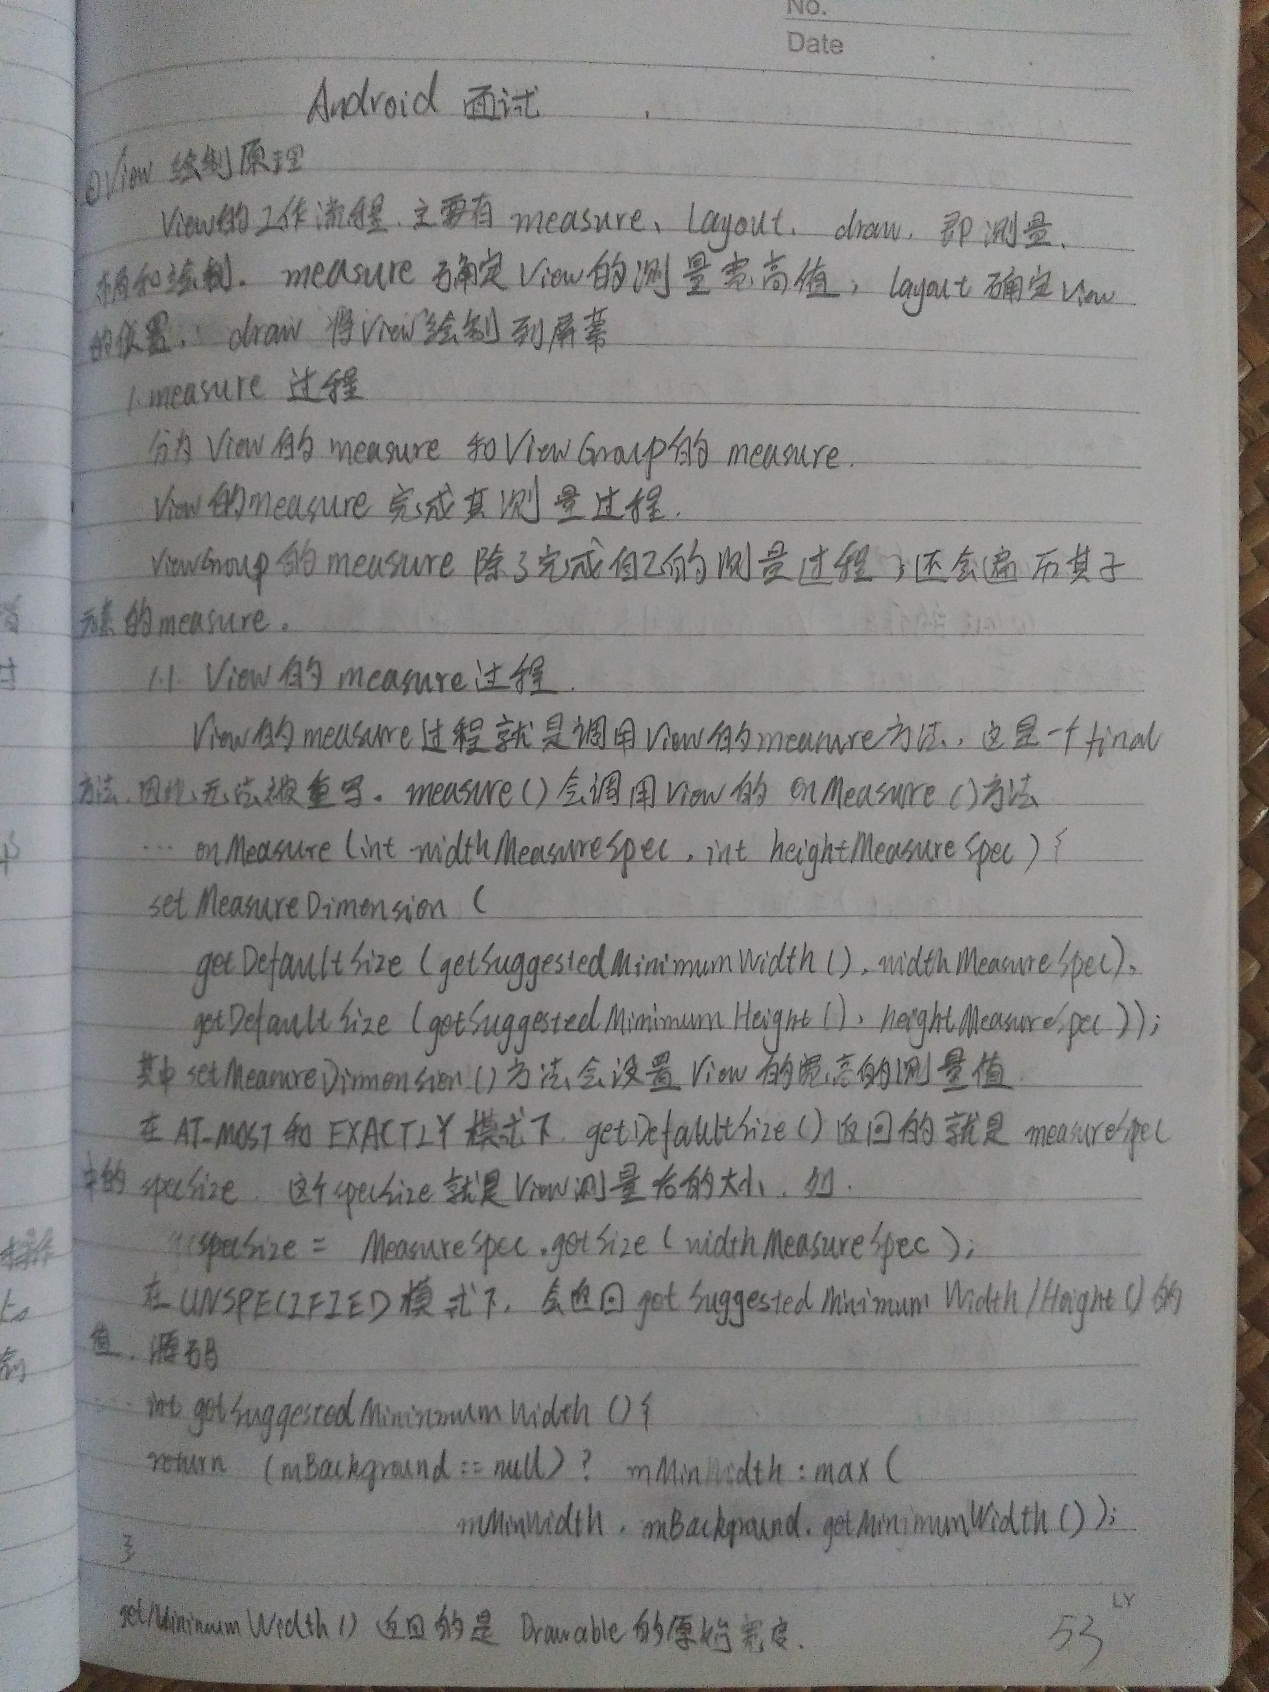 No.
Date
Android 面试
①View 绘制原理
View的工作流程.主要有 measure、layout、draw, 即测量、
布局和绘制. measure 确定View的测量宽高值, layout 确定View
的位置, draw 将View绘制到屏幕
1.measure 过程
分为View的measure 和ViewGroup的measure.
View的measure 完成其测量过程.
ViewGroup的measure 除了完成自己的测量过程,还会遍历其子
元素的measure。
1.1. View的measure过程.
View的measure过程就是调用View的measure方法,这是一个final
方法,因此无法被重写. measure()会调用View的 onMeasure()方法
... onMeasure (int widthMeasureSpec, int heightMeasureSpec) {
setMeasureDimension (
getDefaultSize (getSuggestedMinimumWidth(), widthMeasureSpec),
getDefaultSize (getSuggestedMinimumHeight(), heightMeasureSpec));
其中setMeasureDimension()方法会设置View的宽高的测量值
在 AT_MOST 和 EXACTLY 模式下 getDefaultSize()返回的就是measureSpec
中的 specSize. 这个specSize就是View测量后的大小. 如.
specSize = MeasureSpec.getSize(widthMeasureSpec);
在UNSPECIFIED模式下, 会返回getSuggestedMinimum Width/Height()的
值. 源码
... int getSuggestedMininmumWidth () {
return (mBackground == null) ? mMinWidth : max (
mMinWidth, mBackground.getMinimumWidth());
}
getMininumWidth() 返回的是 Drawable的原始宽度.
LY
53